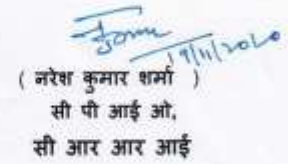 19/11/2020
( नरेश कुमार शर्मा )
सी पी आई ओ,
सी आर आर आई